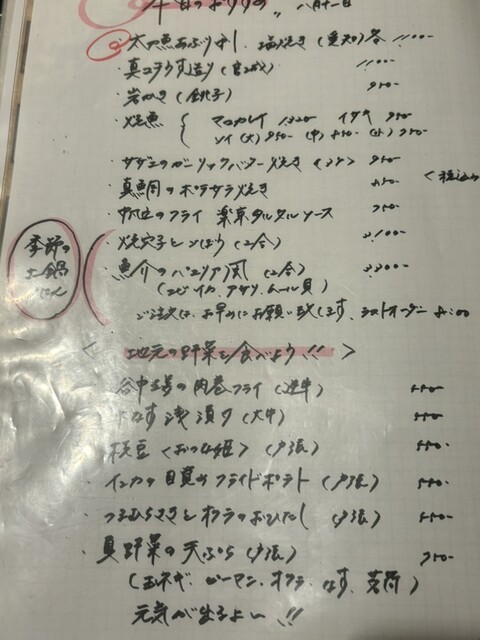 本日のおすすめ 八月十一日
・太刀魚あぶり刺し、塩焼き (愛知) 各 1100-
・真コチうす造り (宮城) 1100-
・岩かき (銚子) 950-
・焼魚 { マコガレイ 1320 イサキ 950-
ソイ(大) 950- (中) 850- (小) 750-
・サザエのガーリックバター焼き 950-
・真鯛のポテサラ焼き 850-
<税込み
・帆立のフライ 楽京タルタルソース 750-
季節の土鍋ごはん
・焼穴子とごぼう (2合) 2,100-
・魚介のパエリア風 (2合) 2,300-
(エビ、イカ、アサリ、ムール貝)
ご注文は、お早めにお願い致します、ラストオーダー 21:00
< 地元の野菜を食べよう!! >
・谷中生姜の肉巻フライ 550-
・水なす浅漬け 550-
・枝豆<おつな姫> 550-
・インカの目覚めフライドポテト 550-
・つるむらさきとオクラのおひたし 550-
・夏野菜の天ぷら 750-
(玉ネギ、ピーマン、オクラ、なす、茗荷)
元気が出るよー!!